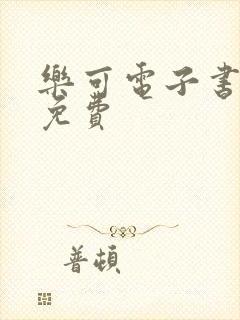 樂可電子書
免費
普頓